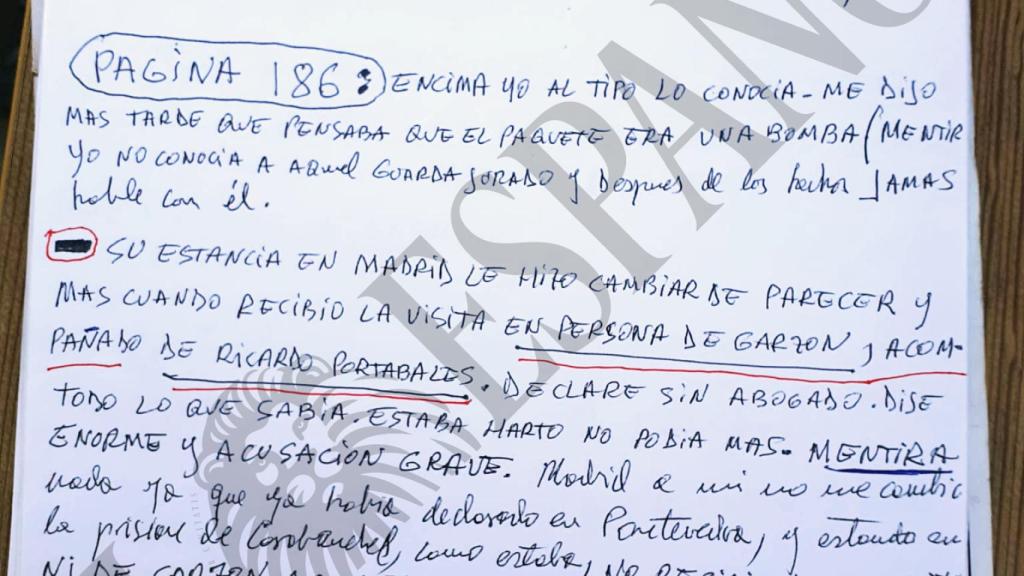 PAGINA 186: ENCIMA YO AL TIPO LO CONOCIA - ME DIJO
MAS TARDE QUE PENSABA QUE EL PAQUETE ERA UNA BOMBA (MENTIR
YO NO CONOCIA A AQuel GUARDA JURADO y Despues de los hechos JAMAS
hable con él.
SU ESTANCIA EN MADRID LE HIZO CAMBIAR DE PARECER y
MAS CUANDO RECIBIO LA VISITA EN PERSONA DE GARZON, ACOM-
PAÑADO DE RICARDO PORTABALES. DECLARE SIN ABOGADO. DISE
TODO LO QUE SABIA. ESTABA HARTO NO PODIA MAS. MENTIRA
ENORME y ACUSACION GRAVE. Madrid a mi no me cambio
nada ya que ya habia declarado en Pontevedra, y estando en
la prision de Carabanchel, como estaba, NO
NI DE GARZON
ESPAÑO